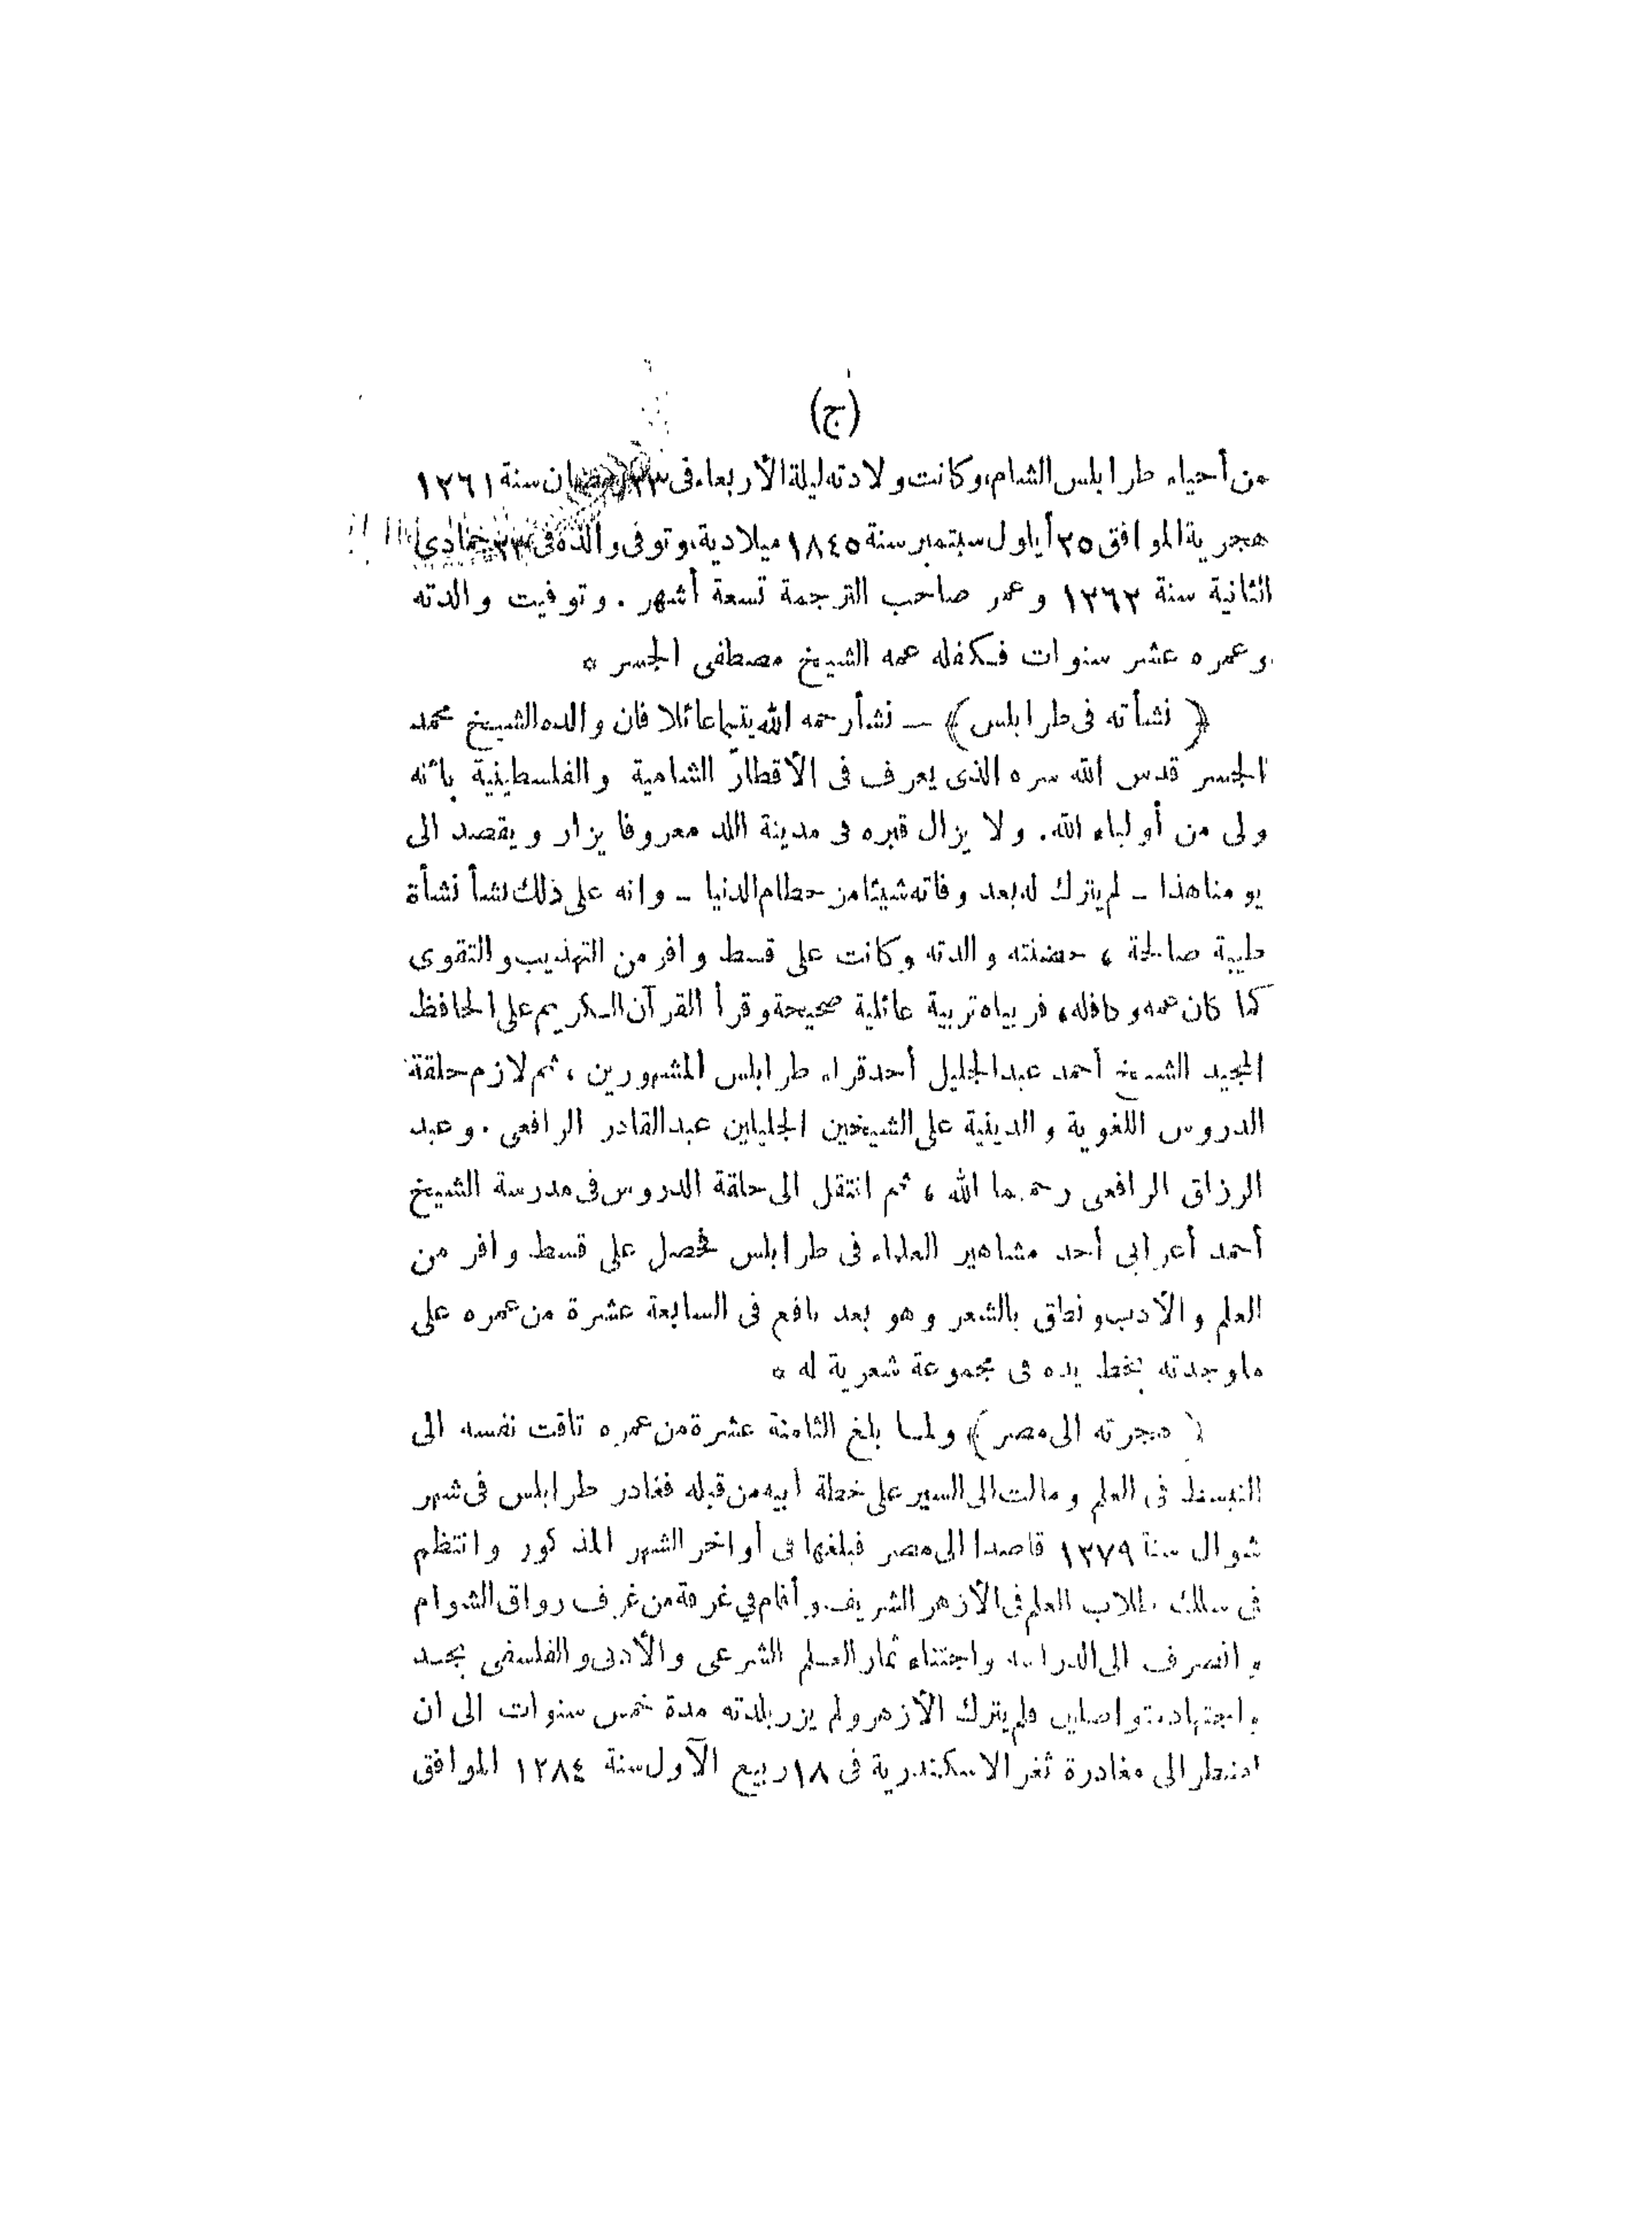 (ج)
من أحياء طرابلس الشام، وكانت ولادته ليلة الأربعاء فى ٢٣ رمضان سنة ١٢٦١
هجرية الموافق ٢٥ أيلول سبتمبر سنة ١٨٤٥ ميلادية، وتوفى والده فى جمادى
الثانية سنة ١٢٦٢ وعمر صاحب الترجمة تسعة أشهر . وتوفيت والدته
وعمره عشر سنوات فكفله عمه الشيخ مصطفى الجسر *
﴿ نشأته فى طرابلس ﴾ — نشأ رحمه الله يتيما عائلا فان والده الشيخ محمد
الجسر قدس الله سره الذى يعرف فى الأقطار الشامية والفلسطينية بأنه
ولى من أولياء الله. ولا يزال قبره فى مدينة اللد معروفا يزار ويقصد الى
يومنا هذا - لم يترك له بعد وفاته شيئا من حطام الدنيا - وانه على ذلك نشأ نشأة
طيبة صالحة ، حضنته والدته وكانت على قسط وافر من التهذيب والتقوى
كما كان عمه وكافله، فربياه تربية عائلية صحيحة وقرأ القرآن الكريم على الحافظ
المجيد الشيخ أحمد عبد الجليل أحد قراء طرابلس المشهورين ، ثم لازم حلقة
الدروس اللغوية والدينية على الشيخين الجليلين عبد القادر الرافعى . وعبد
الرزاق الرافعى رحمهما الله ، ثم انتقل الى حلقة الدروس فى مدرسة الشيخ
أحمد أعرابى أحد مشاهير العلماء فى طرابلس فحصل على قسط وافر من
العلم والأدب ونطق بالشعر وهو بعد يافع فى السابعة عشرة من عمره على
ماوجدته بخط يده فى مجموعة شعرية له *
﴿ هجرته الى مصر ﴾ ولما بلغ الثامنة عشرة من عمره تاقت نفسه الى
التبسط فى العلم ومالت الى السير على خطة أبيه من قبله فغادر طرابلس فى شهر
شوال سنة ١٢٧٩ قاصدا الى مصر فبلغها فى أواخر الشهر المذكور وانتظم
فى سلك طلاب العلم فى الأزهر الشريف وأقام في غرفة من غرف رواق الشوام
وانصرف الى الدراسة واجتناء ثمار العلم الشرعى والأدبى والفلسفى بجد
واجتهاد متواصلين فلم يترك الأزهر ولم يزر بلدته مدة خمس سنوات الى ان
اضطر الى مغادرة ثغر الاسكندرية فى ١٨ ربيع الأول سنة ١٢٨٤ الموافق